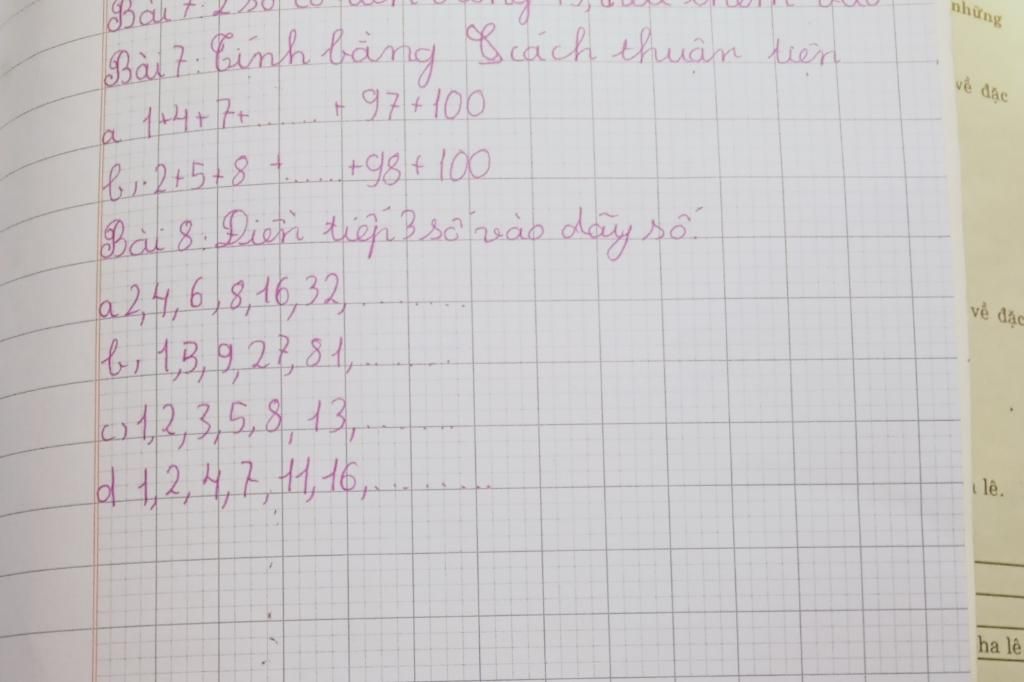 Bài 7: Tính bằng 2 cách thuận tiện
những
về đặc
a 1+4+7+......+ 97+100
b, 2+5+8 +......+98+100
Bài 8: Điền tiếp 3 số vào dãy số
a 2,4,6,8,16,32,..........
b, 1,3,9,27,81,.........
c) 1,2,3,5,8,13,.........
d 1,2,4,7,11,16,..........
về đặc
lê.
ha lê